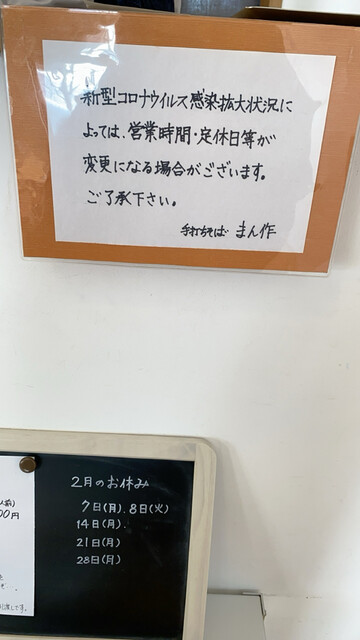 新型コロナウイルス感染拡大状況に
よっては、営業時間・定休日等が
変更になる場合がございます。
ご了承下さい。
手打そば まん作
2月のお休み
7日(月).8日(火)
14日(月).
21日(月)
28日(月)
00円